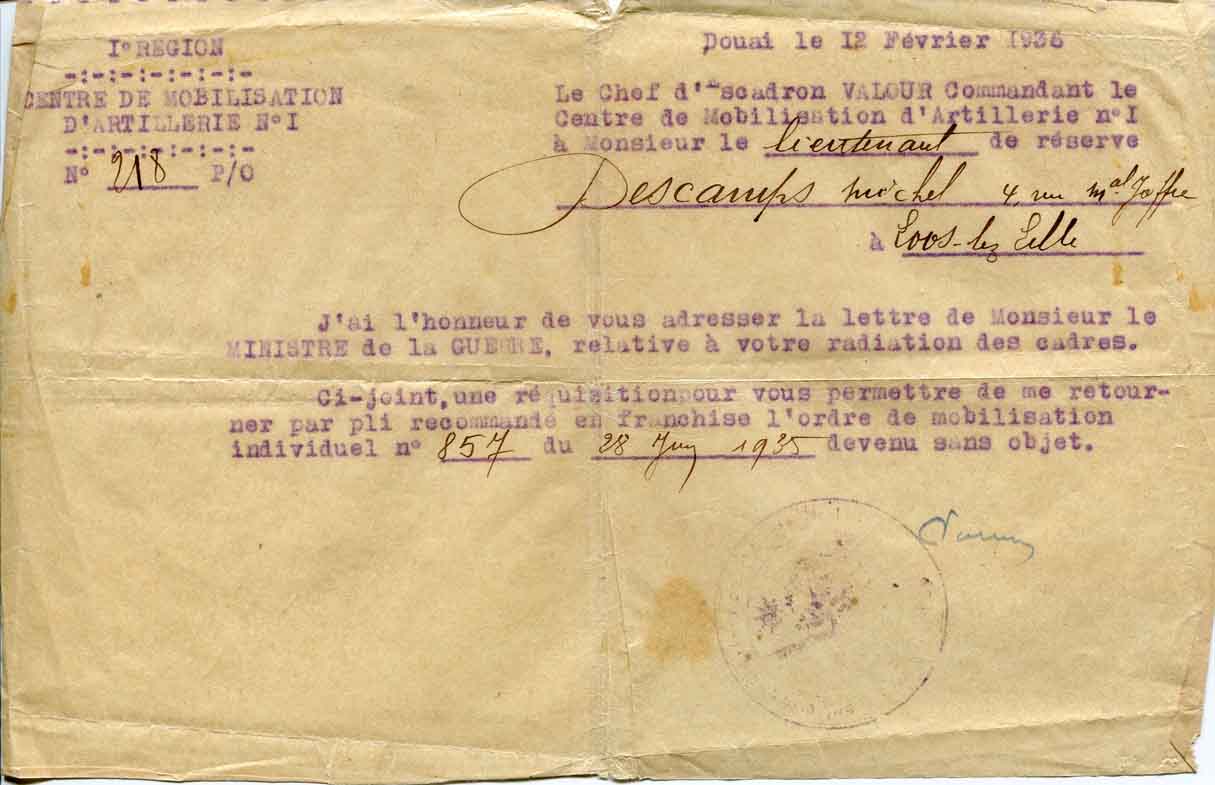 I° REGION
-:-:-:-:-:-:-
CENTRE DE MOBILISATION
D'ARTILLERIE N°I
-:-:-:-:-:-:-
N° 218 P/O
Douai le 12 Février 1936
Le Chef d'Escadron VALOUR Commandant le
Centre de Mobilisation d'Artillerie n°I
à Monsieur le lieutenant de réserve
Descamps Michel 4, rue Mal Joffre
à Loos-lez Lille
J'ai l'honneur de vous adresser la lettre de Monsieur le
MINISTRE de la GUERRE, relative à votre radiation des cadres.
Ci-joint, une réquisitionpour vous permettre de me retour-
ner par pli recommandé en franchise l'ordre de mobilisation
individuel n° 857 du 28 1935 devenu sans objet.